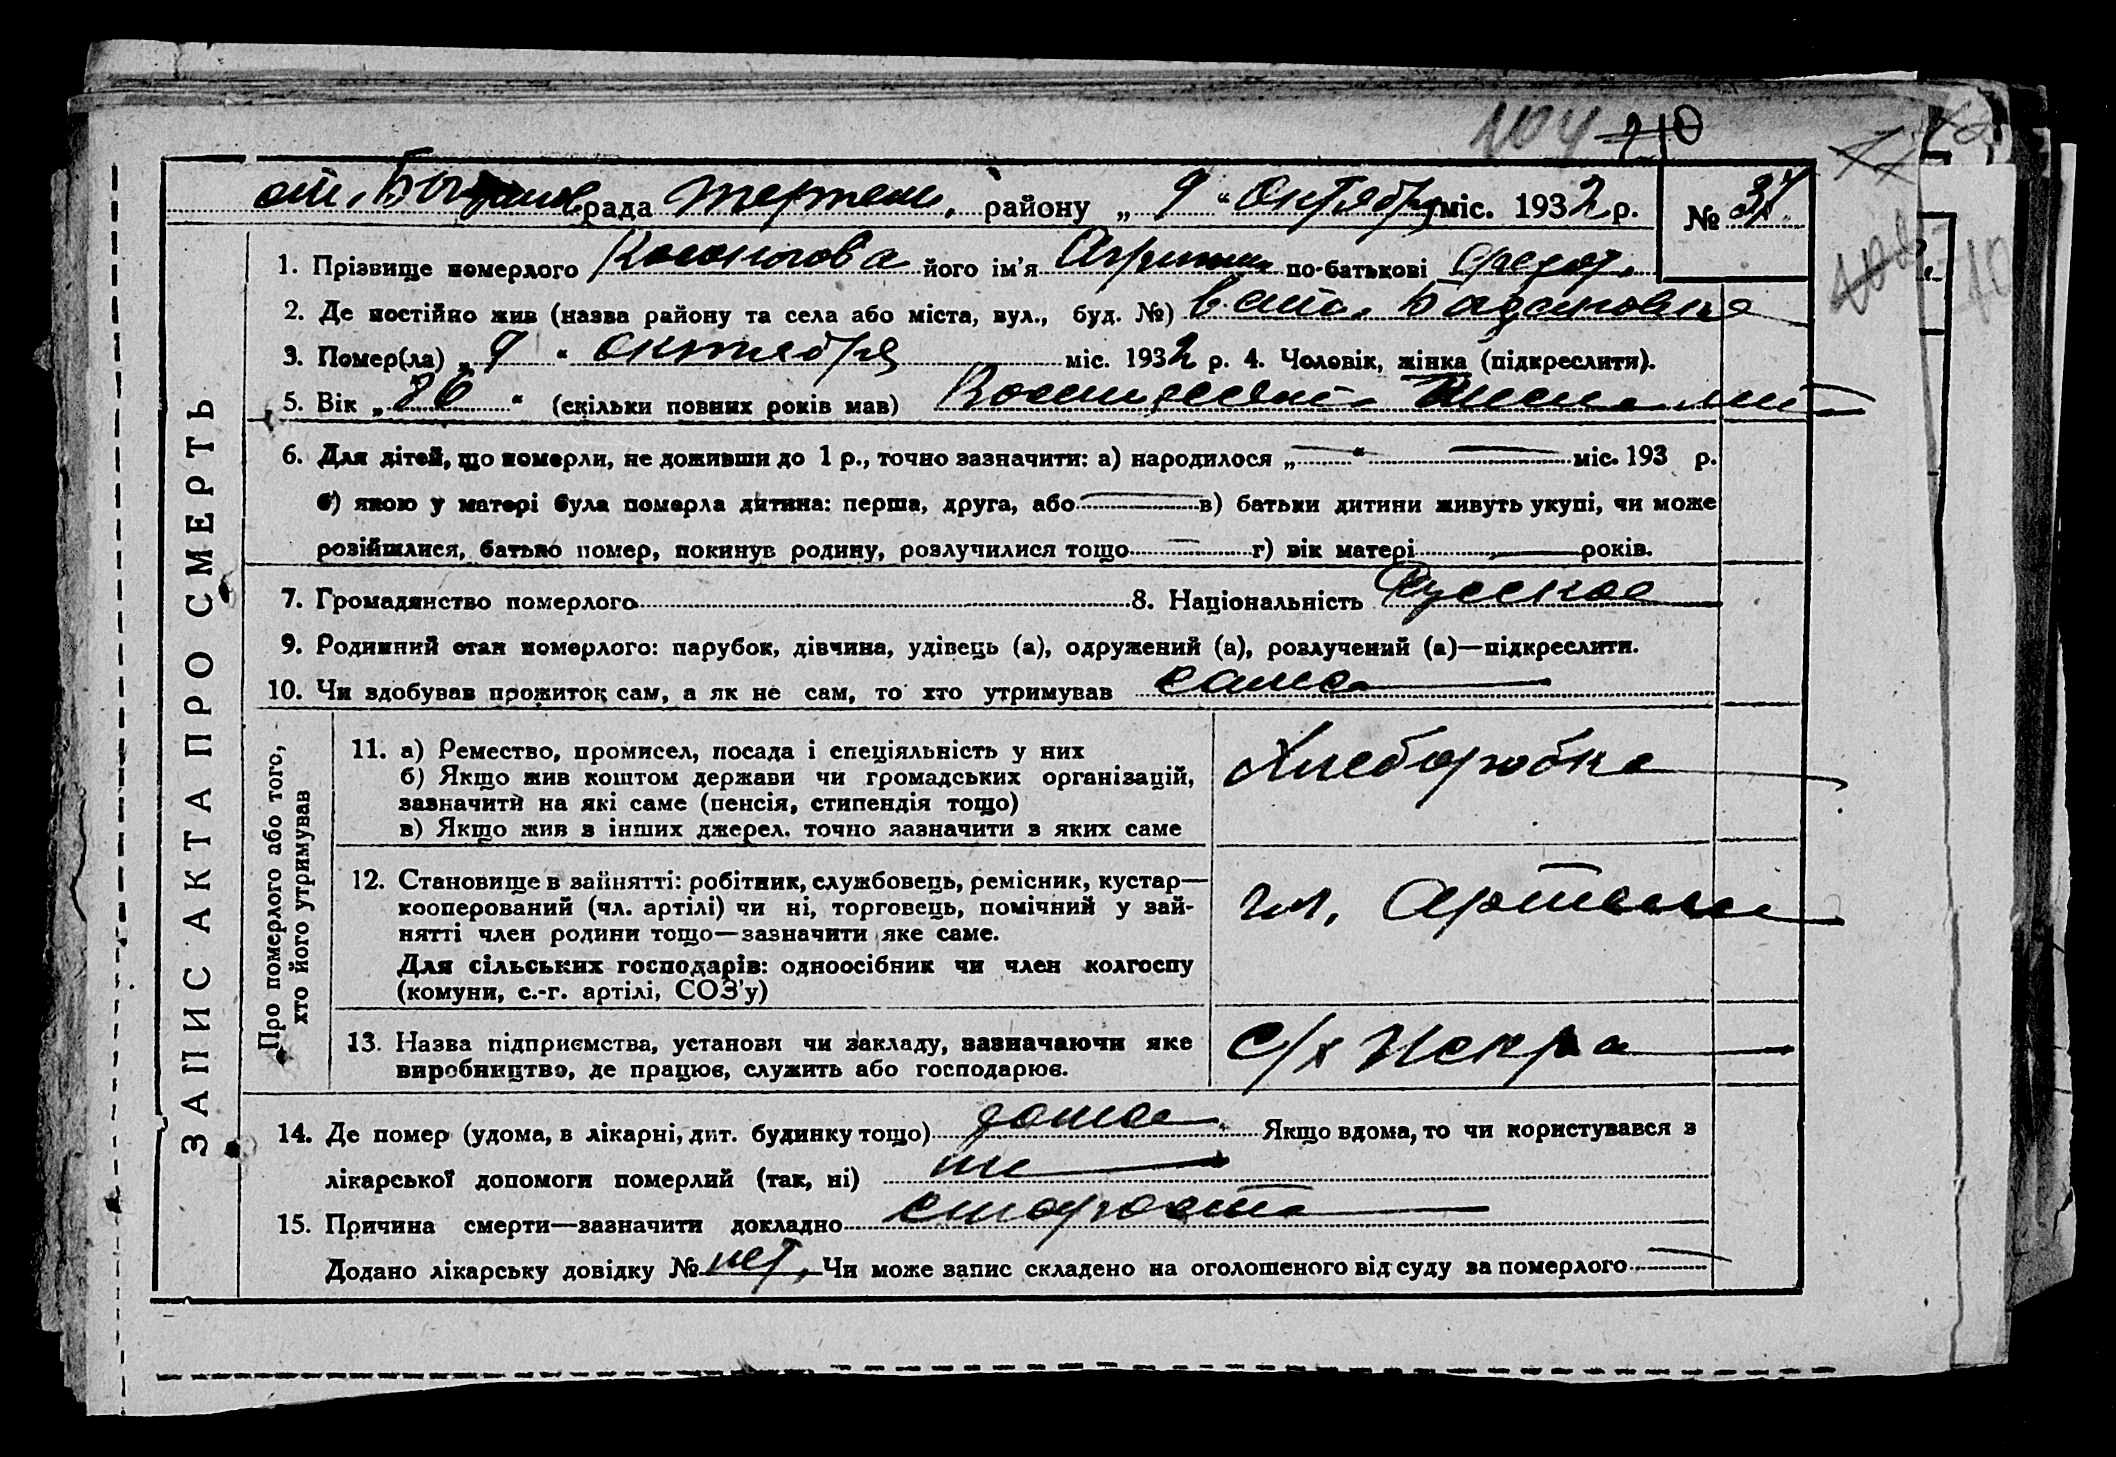 104 210
рада району „ 9 “ Октября міс. 1932 р. № 37
ЗАПИС АКТА ПРО СМЕРТЬ
1. Прізвище померлого Косоногова його ім’я по-батькові Федор.
2. Де постійно жив (назва району та села або міста, вул., буд. №)
3. Помер(ла) „ 9 “ октября міс. 1932 р. 4. Чоловік, жінка (підкреслити).
5. Вік „ 86 “ (скільки повних років мав) Восемдесят
6. Для дітей, що померли, не доживши до 1 р., точно зазначити: а) народилося „ “ міс. 193 р.
б) якою у матері була померла дитина: перша, друга, або в) батьки дитини живуть укупі, чи може
розійшлися, батько помер, покинув родину, розлучилися тощо г) вік матері років.
7. Громадянство померлого 8. Національність Русская
9. Родинний стан померлого: парубок, дівчина, удівець (а), одружений (а), розлучений (а)—підкреслити.
10. Чи здобував прожиток сам, а як не сам, то хто утримував сама
Про померлого або того,
хто його утримував
11. а) Ремество, промисел, посада і спеціяльність у них
б) Якщо жив коштом держави чи громадських організацій,
зазначити на які саме (пенсія, стипендія тощо)
в) Якщо жив з інших джерел, точно зазначити з яких саме
Хлеборобка
12. Становище в зайнятті: робітник, службовець, ремісник, кустар—
кооперований (чл. артілі) чи ні, торговець, помічний у зай-
нятті член родини тощо—зазначити яке саме.
Для сільських господарів: одноосібник чи член колгоспу
(комуни, с.-г. артілі, СОЗ’у)
чл. Артели
13. Назва підприємства, установи чи закладу, зазначаючи яке
виробництво, де працює, служить або господарює.
С/х Искра
14. Де помер (удома, в лікарні, дит. будинку тощо) дома Якщо вдома, то чи користувався з
лікарської допомоги померлий (так, ні) не
15. Причина смерти—зазначити докладно старость
Додано лікарську довідку № нет, Чи може запис складено на оголошеного від суду за померлого